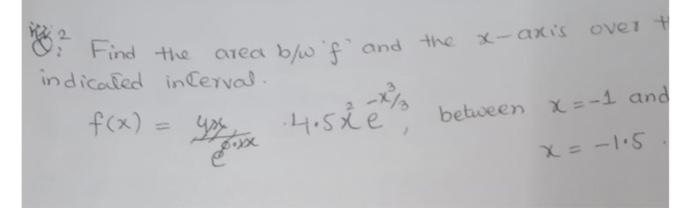 Q:2 Find the area b/w 'f' and the x-axis over
indicated interval.
f(x) = 4.5x²e^(-x³/3), between x=-1 and
x = -1.5.